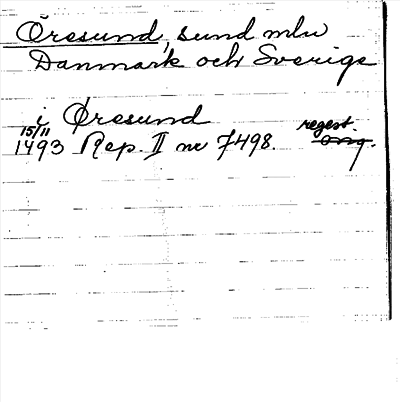 Öresund, sund mlu
Danmark och Sverige
i Øresund
15/11 regest.
1493 Rep. II nr 7498. orig.